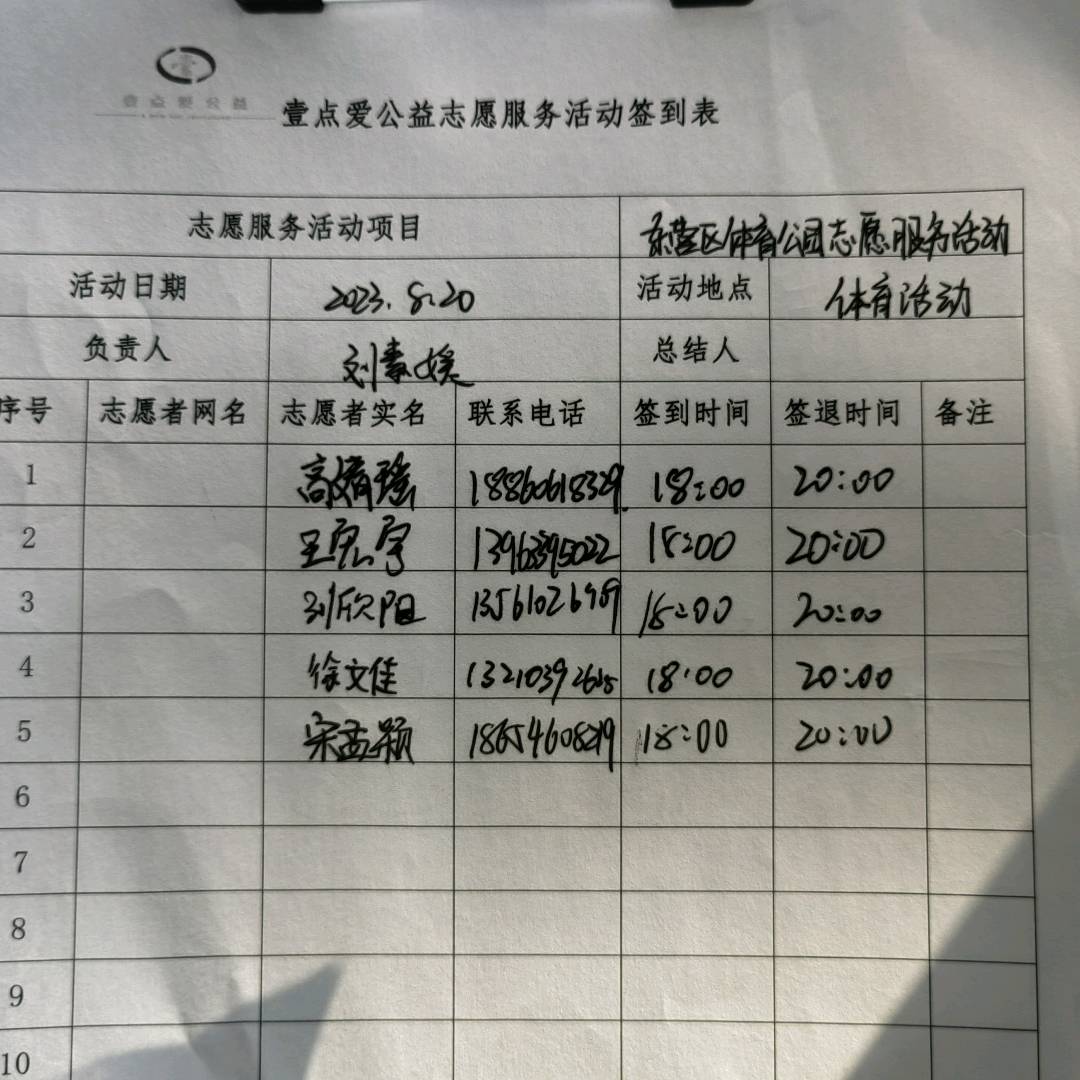 壹点爱公益
壹点爱公益志愿服务活动签到表
志愿服务活动项目 东营区体育公园志愿服务活动
活动日期 2023.8.20 活动地点 体育活动
负责人 刘 总结人
序号 志愿者网名 志愿者实名 联系电话 签到时间 签退时间 备注
1 高婧瑶 18860618329 18:00 20:00
2 王宏宇 13963395022 18:00 20:00
3 刘欣阳 18:00 20:00
4 徐文佳 18:00 20:00
5 宋孟颖 18:00 20:00
6
7
8
9
10